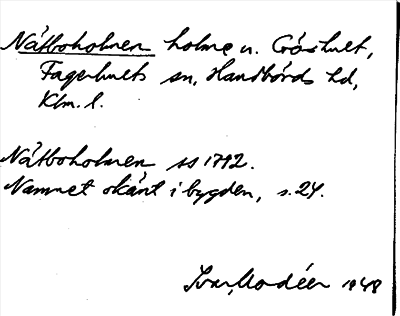 Nätboholmen holme u. Cröshult,
Fagerhults sn, Handbörds hd,
Klm. l.
Nätboholmen ss 1792.
Namnet okänt i bygden, s. 24.
Ivar Modéer 1948